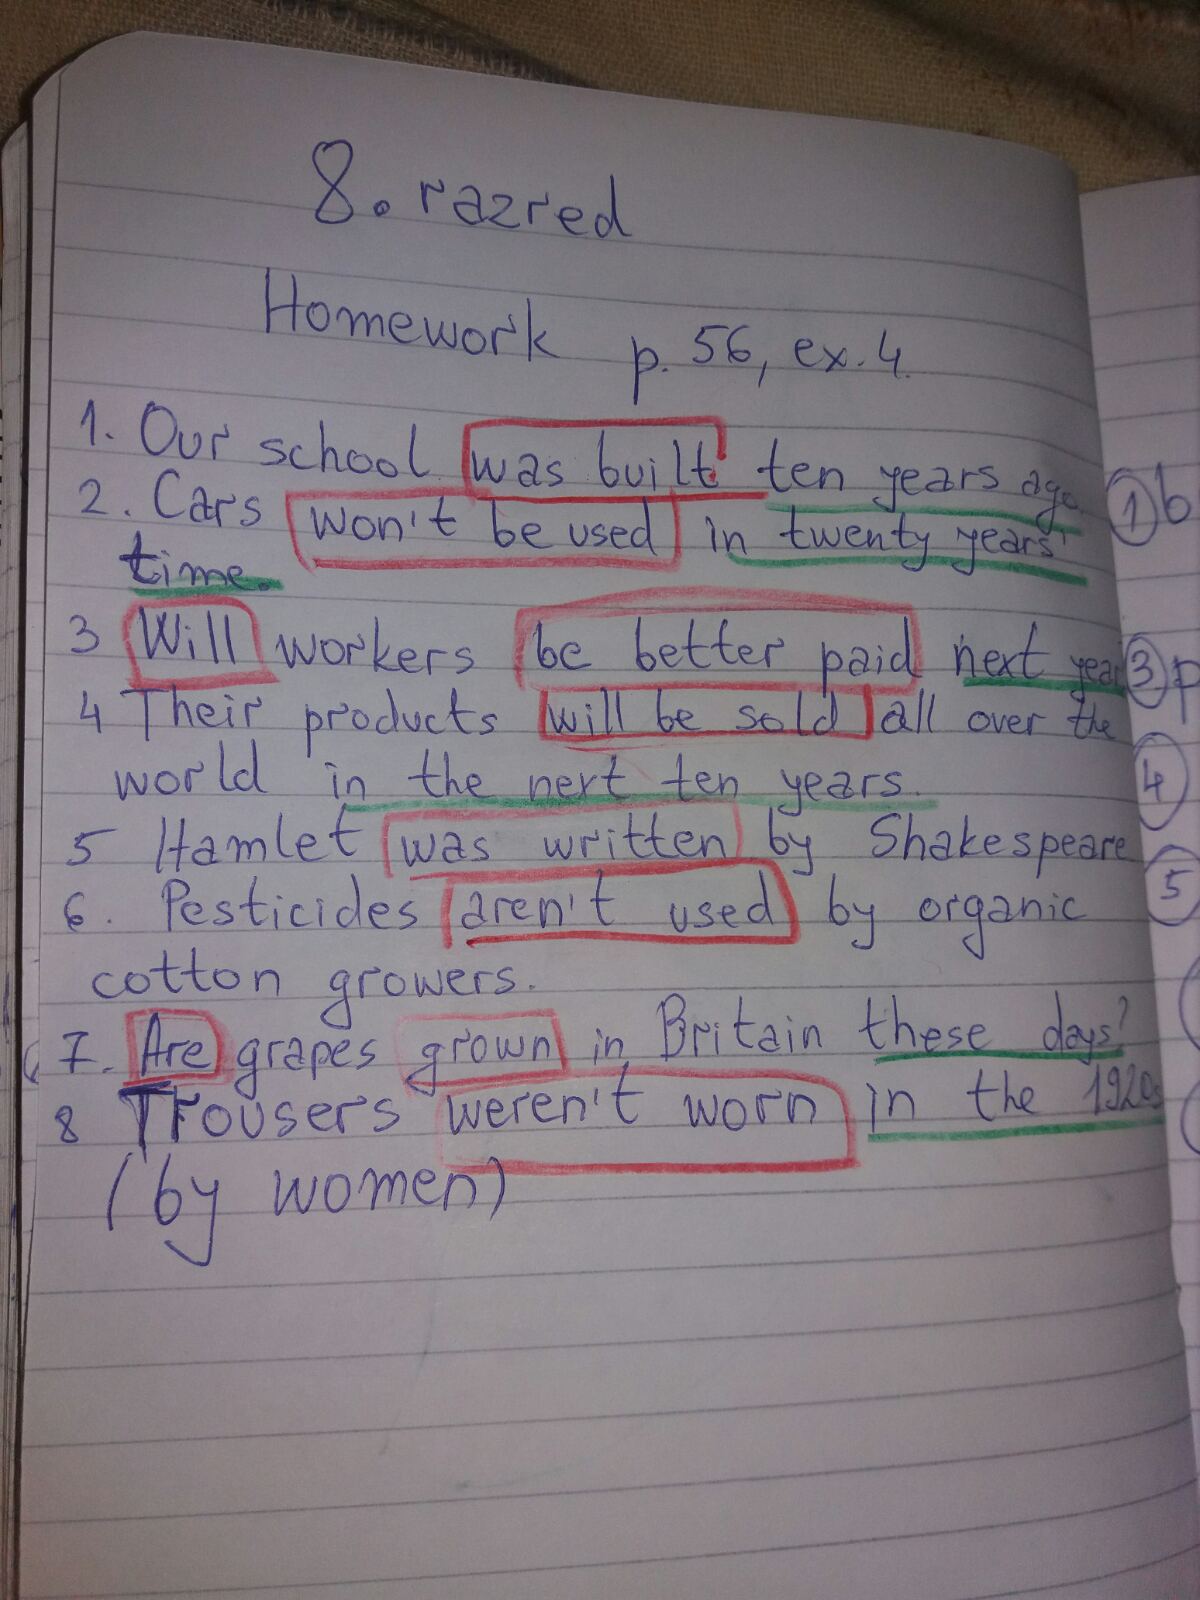 8. razred
Homework p. 56, ex. 4.
1. Our school was built ten years ago.
2. Cars won't be used in twenty years'
time.
3 Will workers be better paid next year
4 Their products will be sold all over the
world in the next ten years.
5 Hamlet was written by Shakespeare
6. Pesticides aren't used by organic
cotton growers.
7. Are grapes grown in Britain these days?
8 Trousers weren't worn in the 1920s
(by women)
1 b
3 p
4
5